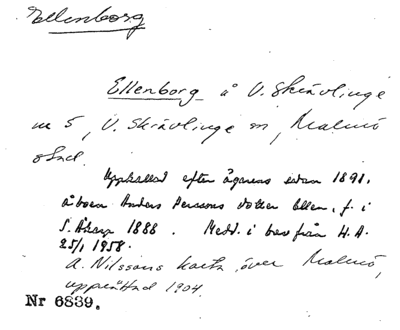 Ellenborg
Ellenborg å V. Skrävlinge
nr 5, V. Skrävlinge sn, Malmö
stad.
Uppkallad efter ägarens sedan 1891,
åboen Anders Perssons dotter Ellen, f. i
S. Åkarp 1888. Medd. i brev från H. A.
25/1 1958.
A. Nilssons karta över Malmö,
upprättad 1904.
Nr 6839.